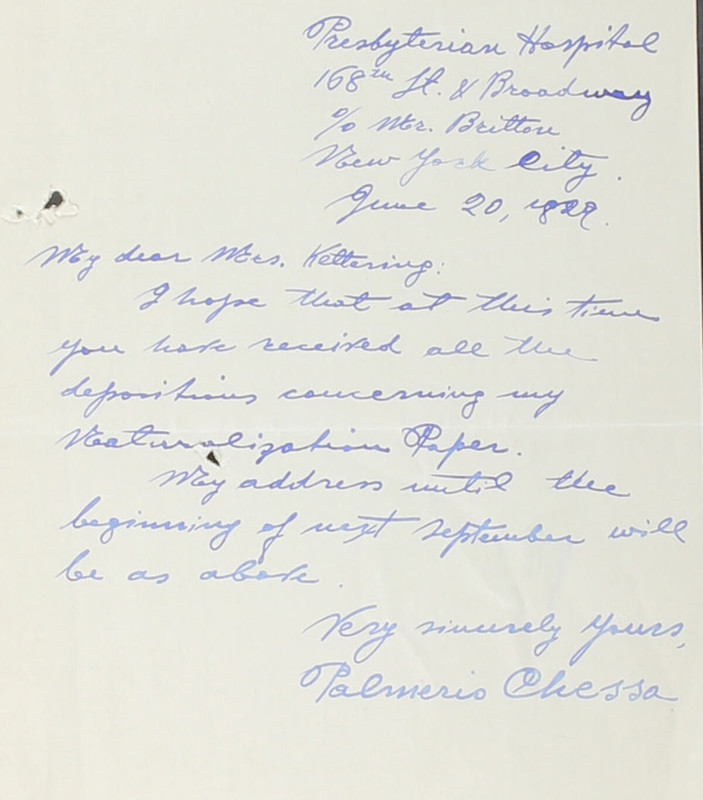 Presbyterian Hospital
168th St. & Broadway
c/o Mr. Britton
New York City.
June 20, 1929.
My dear Mrs. Kettering:
I hope that at this time
you have received all the
depositions concerning my
Naturalization Paper.
My address until the
beginning of next september will
be as above.
Very sincerely Yours,
Palmerio Chessa